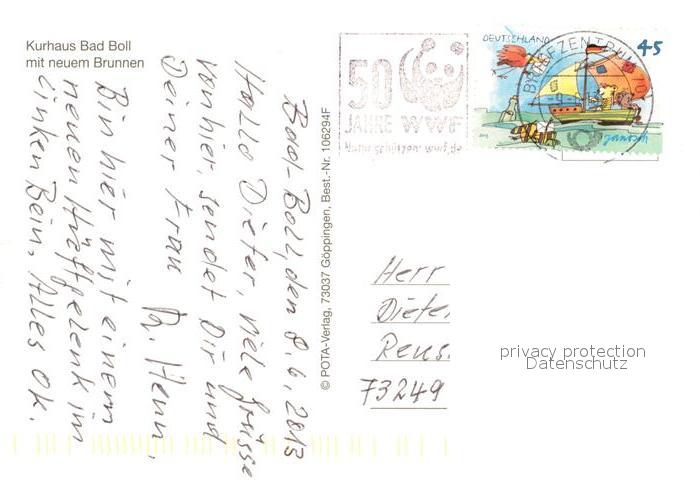 Kurhaus Bad Boll
mit neuem Brunnen
Bad-Boll, den 8.6.2013
Hallo Dieter, viele Grüsse
von hier, sendet Dir und
Deiner Frau
Bin hier mit einem
neuen Hüftgelenk im
linken Bein. Alles OK.
© POTA-Verlag, 73037 Göppingen, Best.-Nr. 106294F
50
JAHRE WWF
Natur schützen: wwf.de
DEUTSCHLAND
45
BRIEFZENTRUM
janosch
Herr
Dieter
73249
privacy protection
Datenschutz